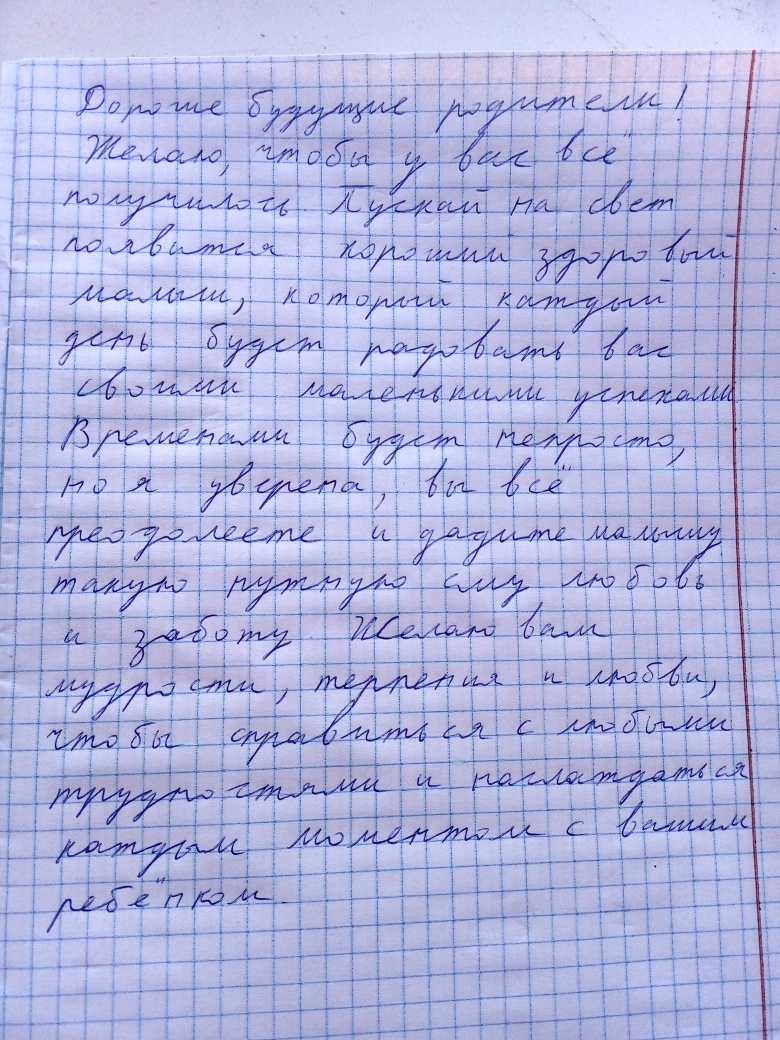 Дорогие будущие родители!
Желаю, чтобы у вас всё
получилось. Пускай на свет
появится хороший здоровый
малыш, который каждый
день будет радовать вас
своими маленькими успехами.
Временами будет непросто,
но я уверена, вы всё
преодолеете и дадите малышу
такую нужную ему любовь
и заботу. Желаю вам
мудрости, терпения и любви,
чтобы справиться с любыми
трудностями и наслаждаться
каждым моментом с вашим
ребёнком.